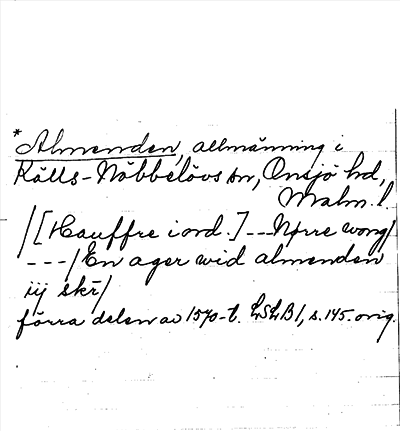 *Almenden, allmänning i
Källs-Nöbbelövs sn, Onsjö hd,
Malm. l.
/[Hauffre i ord.]---Nørre wong/
---/En ager wid almenden
iij skr/
förra delen av 1570-t. LSLB 1, s. 145. orig.